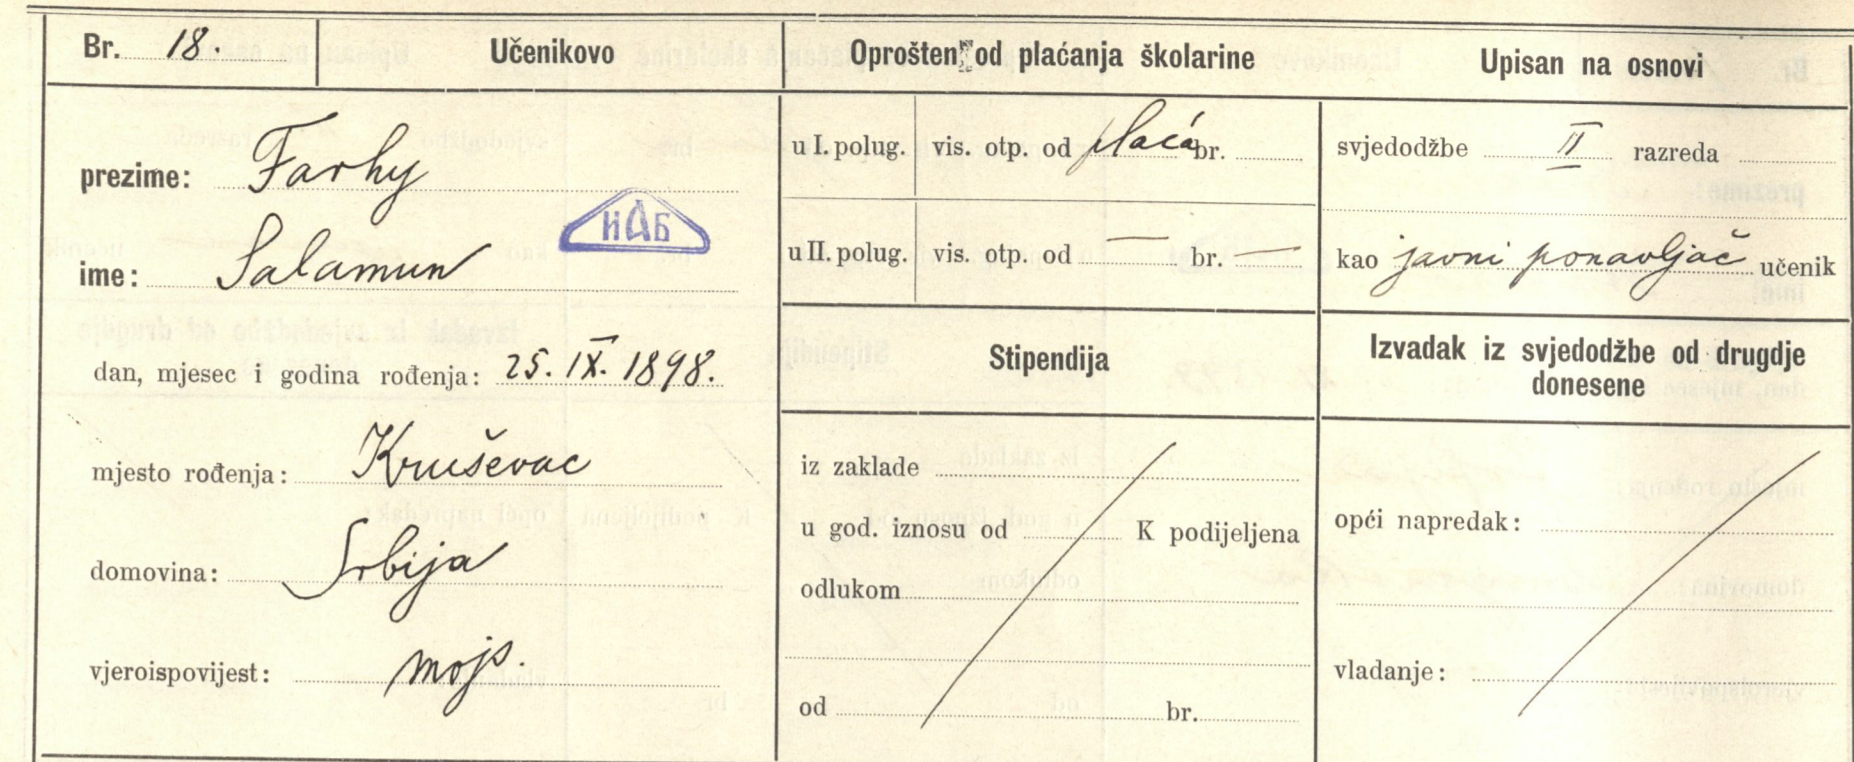 Br. 18. Učenikovo
prezime: Farhy
ime: Salamun
ИАБ
dan, mjesec i godina rođenja: 25. IX. 1898.
mjesto rođenja: Kruševac
domovina: Srbija
vjeroispovijest: mojs.
Oprošten od plaćanja školarine
u I. polug. vis. otp. od plaća br.
u II. polug. vis. otp. od — br. —
Stipendija
iz zaklade
u god. iznosu od K podijeljena
odlukom
od br.
Upisan na osnovi
svjedodžbe II razreda
kao javni ponavljač učenik
Izvadak iz svjedodžbe od drugdje
donesene
opći napredak:
vladanje: